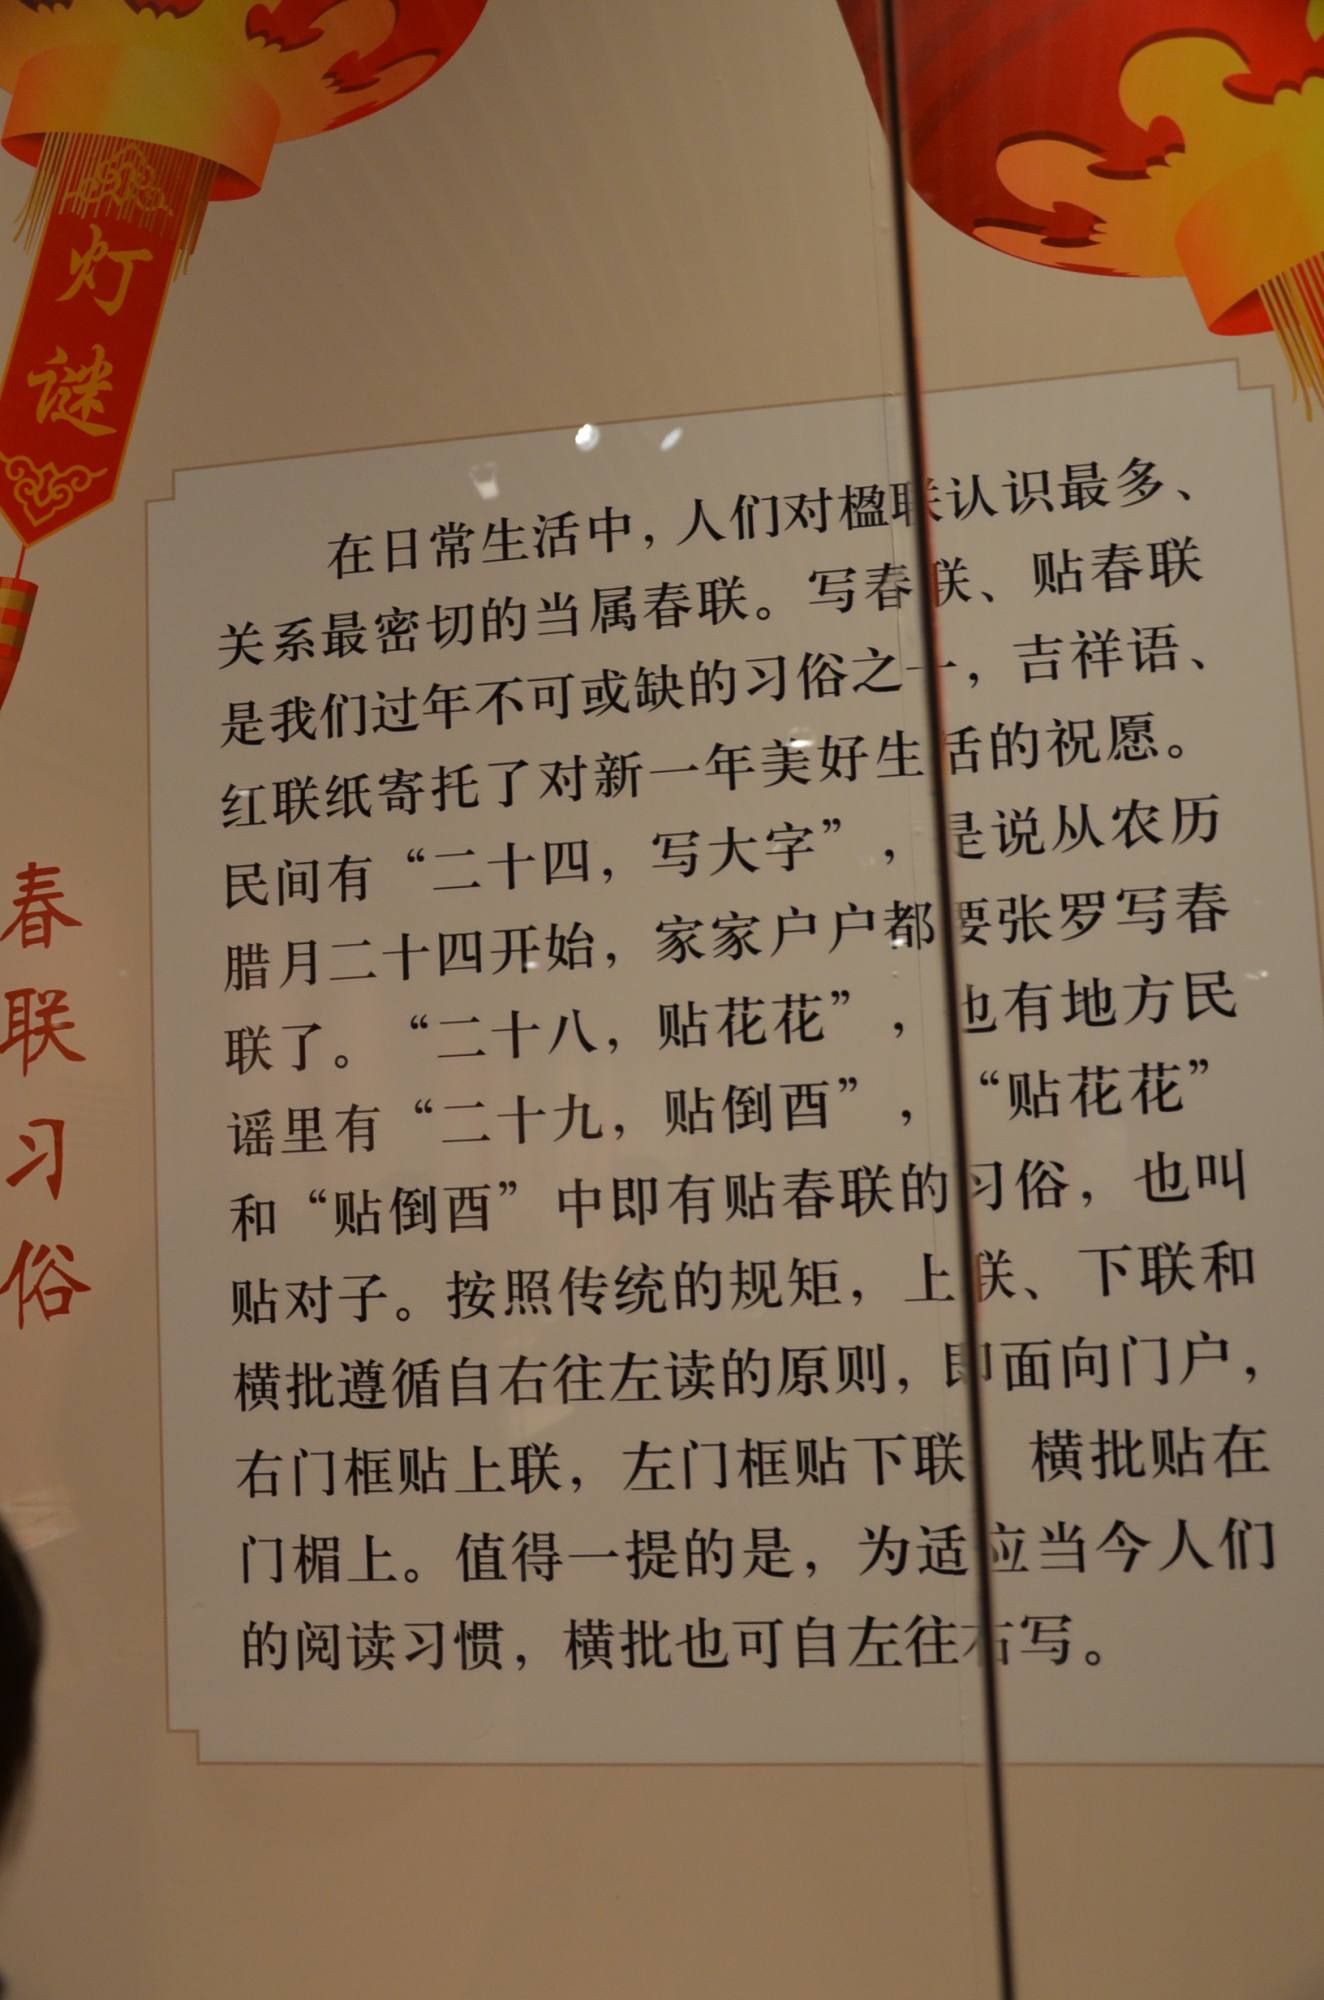 灯谜
春联习俗
在日常生活中，人们对楹联认识最多、
关系最密切的当属春联。写春联、贴春联
是我们过年不可或缺的习俗之一，吉祥语、
红联纸寄托了对新一年美好生活的祝愿。
民间有“二十四，写大字”，是说从农历
腊月二十四开始，家家户户都要张罗写春
联了。“二十八，贴花花”，也有地方民
谣里有“二十九，贴倒酉”，“贴花花”
和“贴倒酉”中即有贴春联的习俗，也叫
贴对子。按照传统的规矩，上联、下联和
横批遵循自右往左读的原则，即面向门户，
右门框贴上联，左门框贴下联 横批贴在
门楣上。值得一提的是，为适应当今人们
的阅读习惯，横批也可自左往右写。